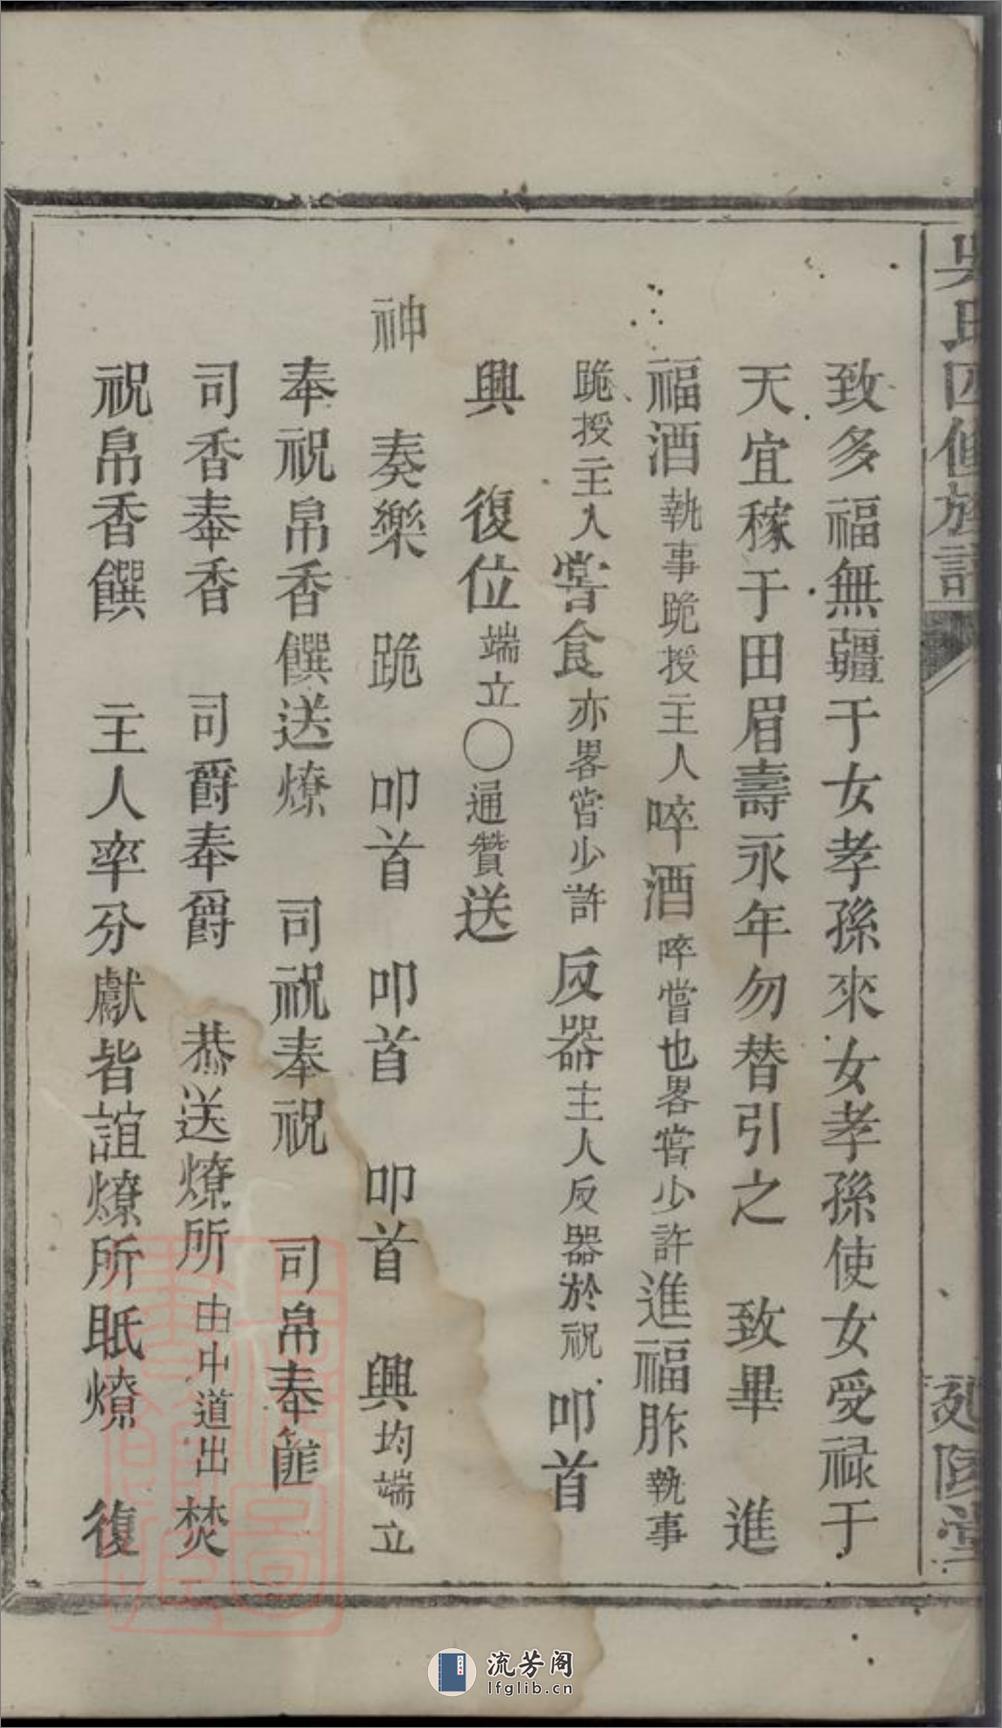 吳氏四修族譜
致多福無疆于女孝孫來女孝孫使女受祿于
天宜稼于田眉壽永年勿替引之 致畢 進
福酒執事跪授主人啐酒啐嘗也畧嘗少許進福胙執事
跪授主人嘗食亦畧嘗少許反器主人反器於祝 叩首
興 復位端立〇通贊送
神 奏樂 跪 叩首 叩首 叩首 興均端立
奉祝帛香饌送燎 司祝奉祝 司帛奉篚
司香奉香 司爵奉爵 恭送燎所由中道出焚
祝帛香饌 主人率分獻皆誼燎所眂燎 復
流芳阁
lfglib.cn